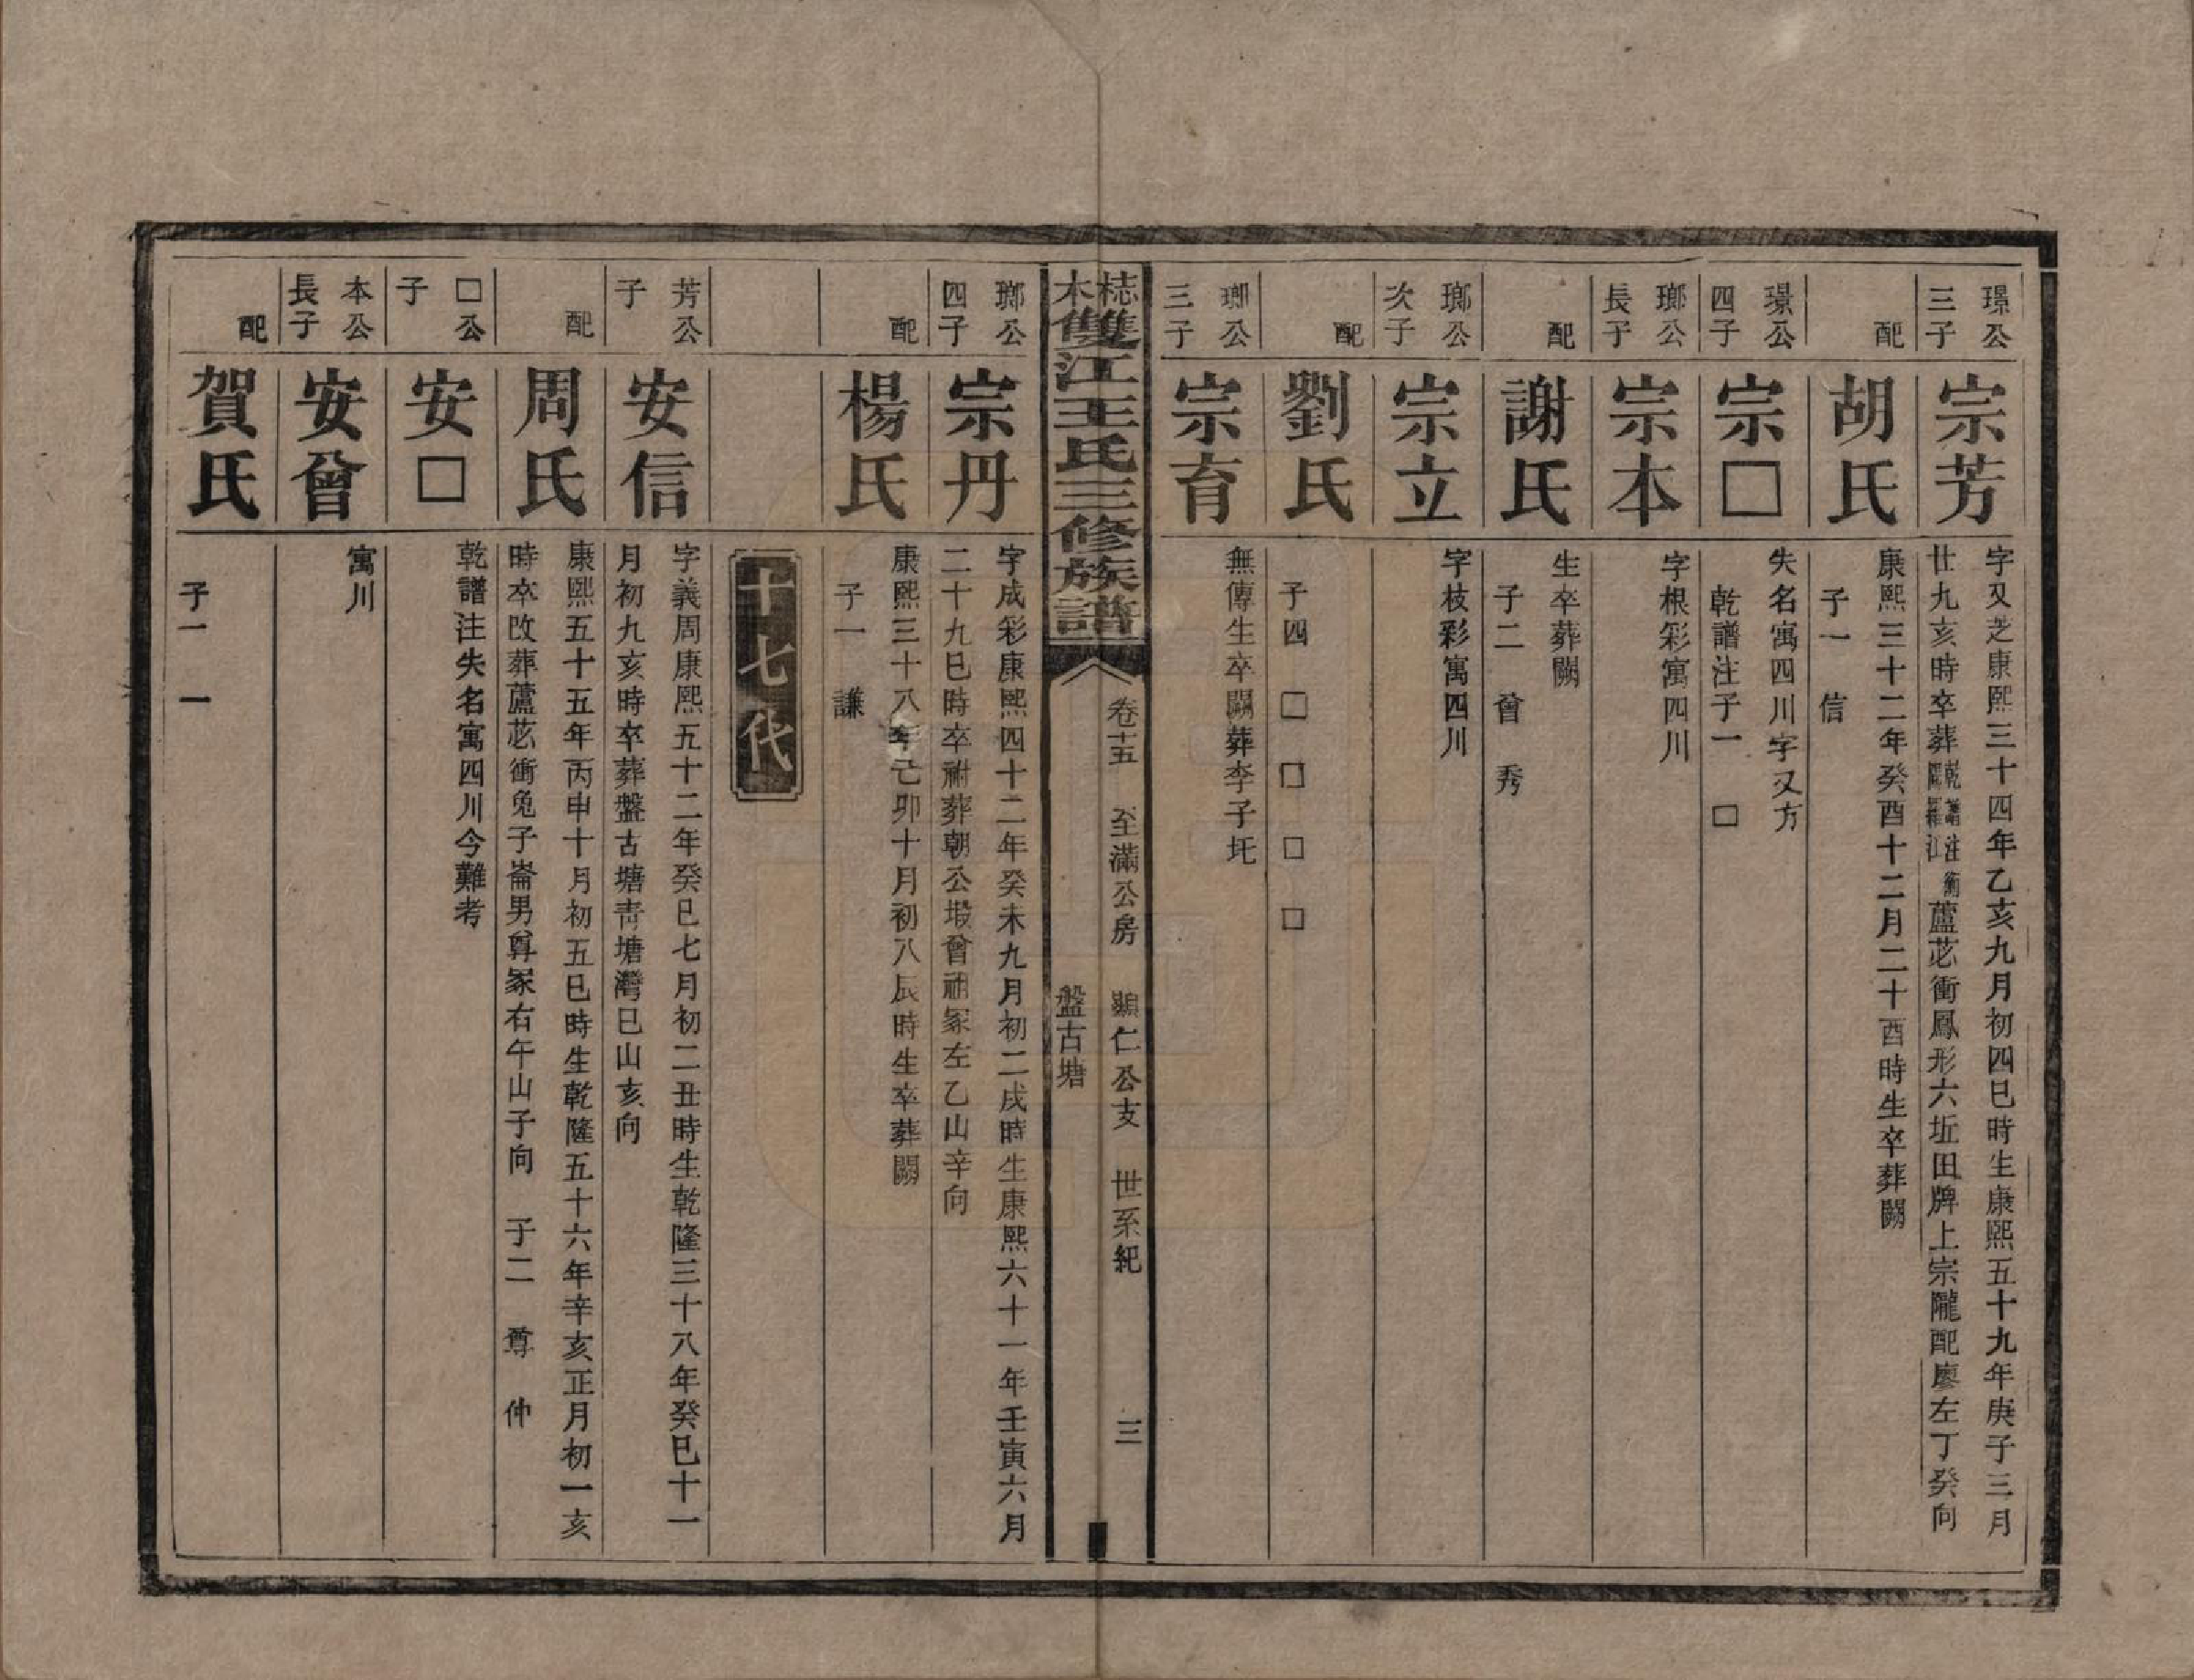 璟公
三子
宗芳
字又芝康熙三十四年乙亥九月初四巳時生康熙五十九年庚子三月
廿九亥時卒葬乾譜注衡陽羅江蘆苾衝鳳形六坵田牌上宗隴配廖左丁癸向
配
胡氏
康熙三十二年癸酉十二月二十酉時生卒葬闕
子一　信
璟公
四子
宗□
失名寓四川字又方
乾譜注子一　□
瑯公
長子
宗本
字根彩寓四川
配
謝氏
生卒葬闕
子二　會　秀
瑯公
次子
宗立
字枝彩寓四川
配
劉氏
子四　□　□　□　□
瑯公
三子
宗育
無傳生卒闕葬李子圫
梽木雙江王氏三修族譜
卷十五　至滿公房　顯仁公支　世系紀　三
盤古塘
瑯公
四子
宗丹
字成彩康熙四十二年癸未九月初二戌時生康熙六十一年壬寅六月
二十九巳時卒祔葬朝公塅會祖冢左乙山辛向
配
楊氏
康熙三十八年己卯十月初八辰時生卒葬闕
子一　謙
十七代
芳公
子
安信
字義周康熙五十二年癸巳七月初二丑時生乾隆三十八年癸巳十一
月初九亥時卒葬盤古塘靑塘灣巳山亥向
配
周氏
康熙五十五年丙申十月初五巳時生乾隆五十六年辛亥正月初一亥
時卒改葬蘆苾衝兔子崙男尊冢右午山子向　子二　尊　仲
□公
子
安□
乾譜注失名寓四川今難考
本公
長子
安會
寓川
配
賀氏
子一　一